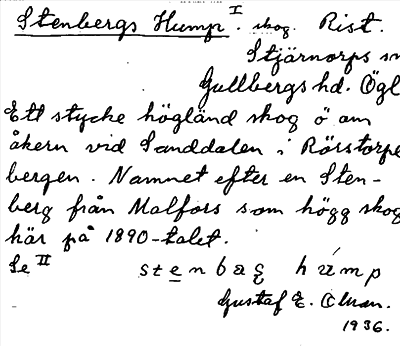 Stenbergs Hump.ᴵ skog. Rist.
Stjärnorps sn
Gullbergs hd. Ögl
Ett stycke högländ skog ö om
åkern vid Sanddalen i Rörstorpe
bergen. Namnet efter en Sten-
berg från Malfors som högg skog
här på 1890-talet.
Se II stenbaş húmp
Gustaf E. Olson.
1936.